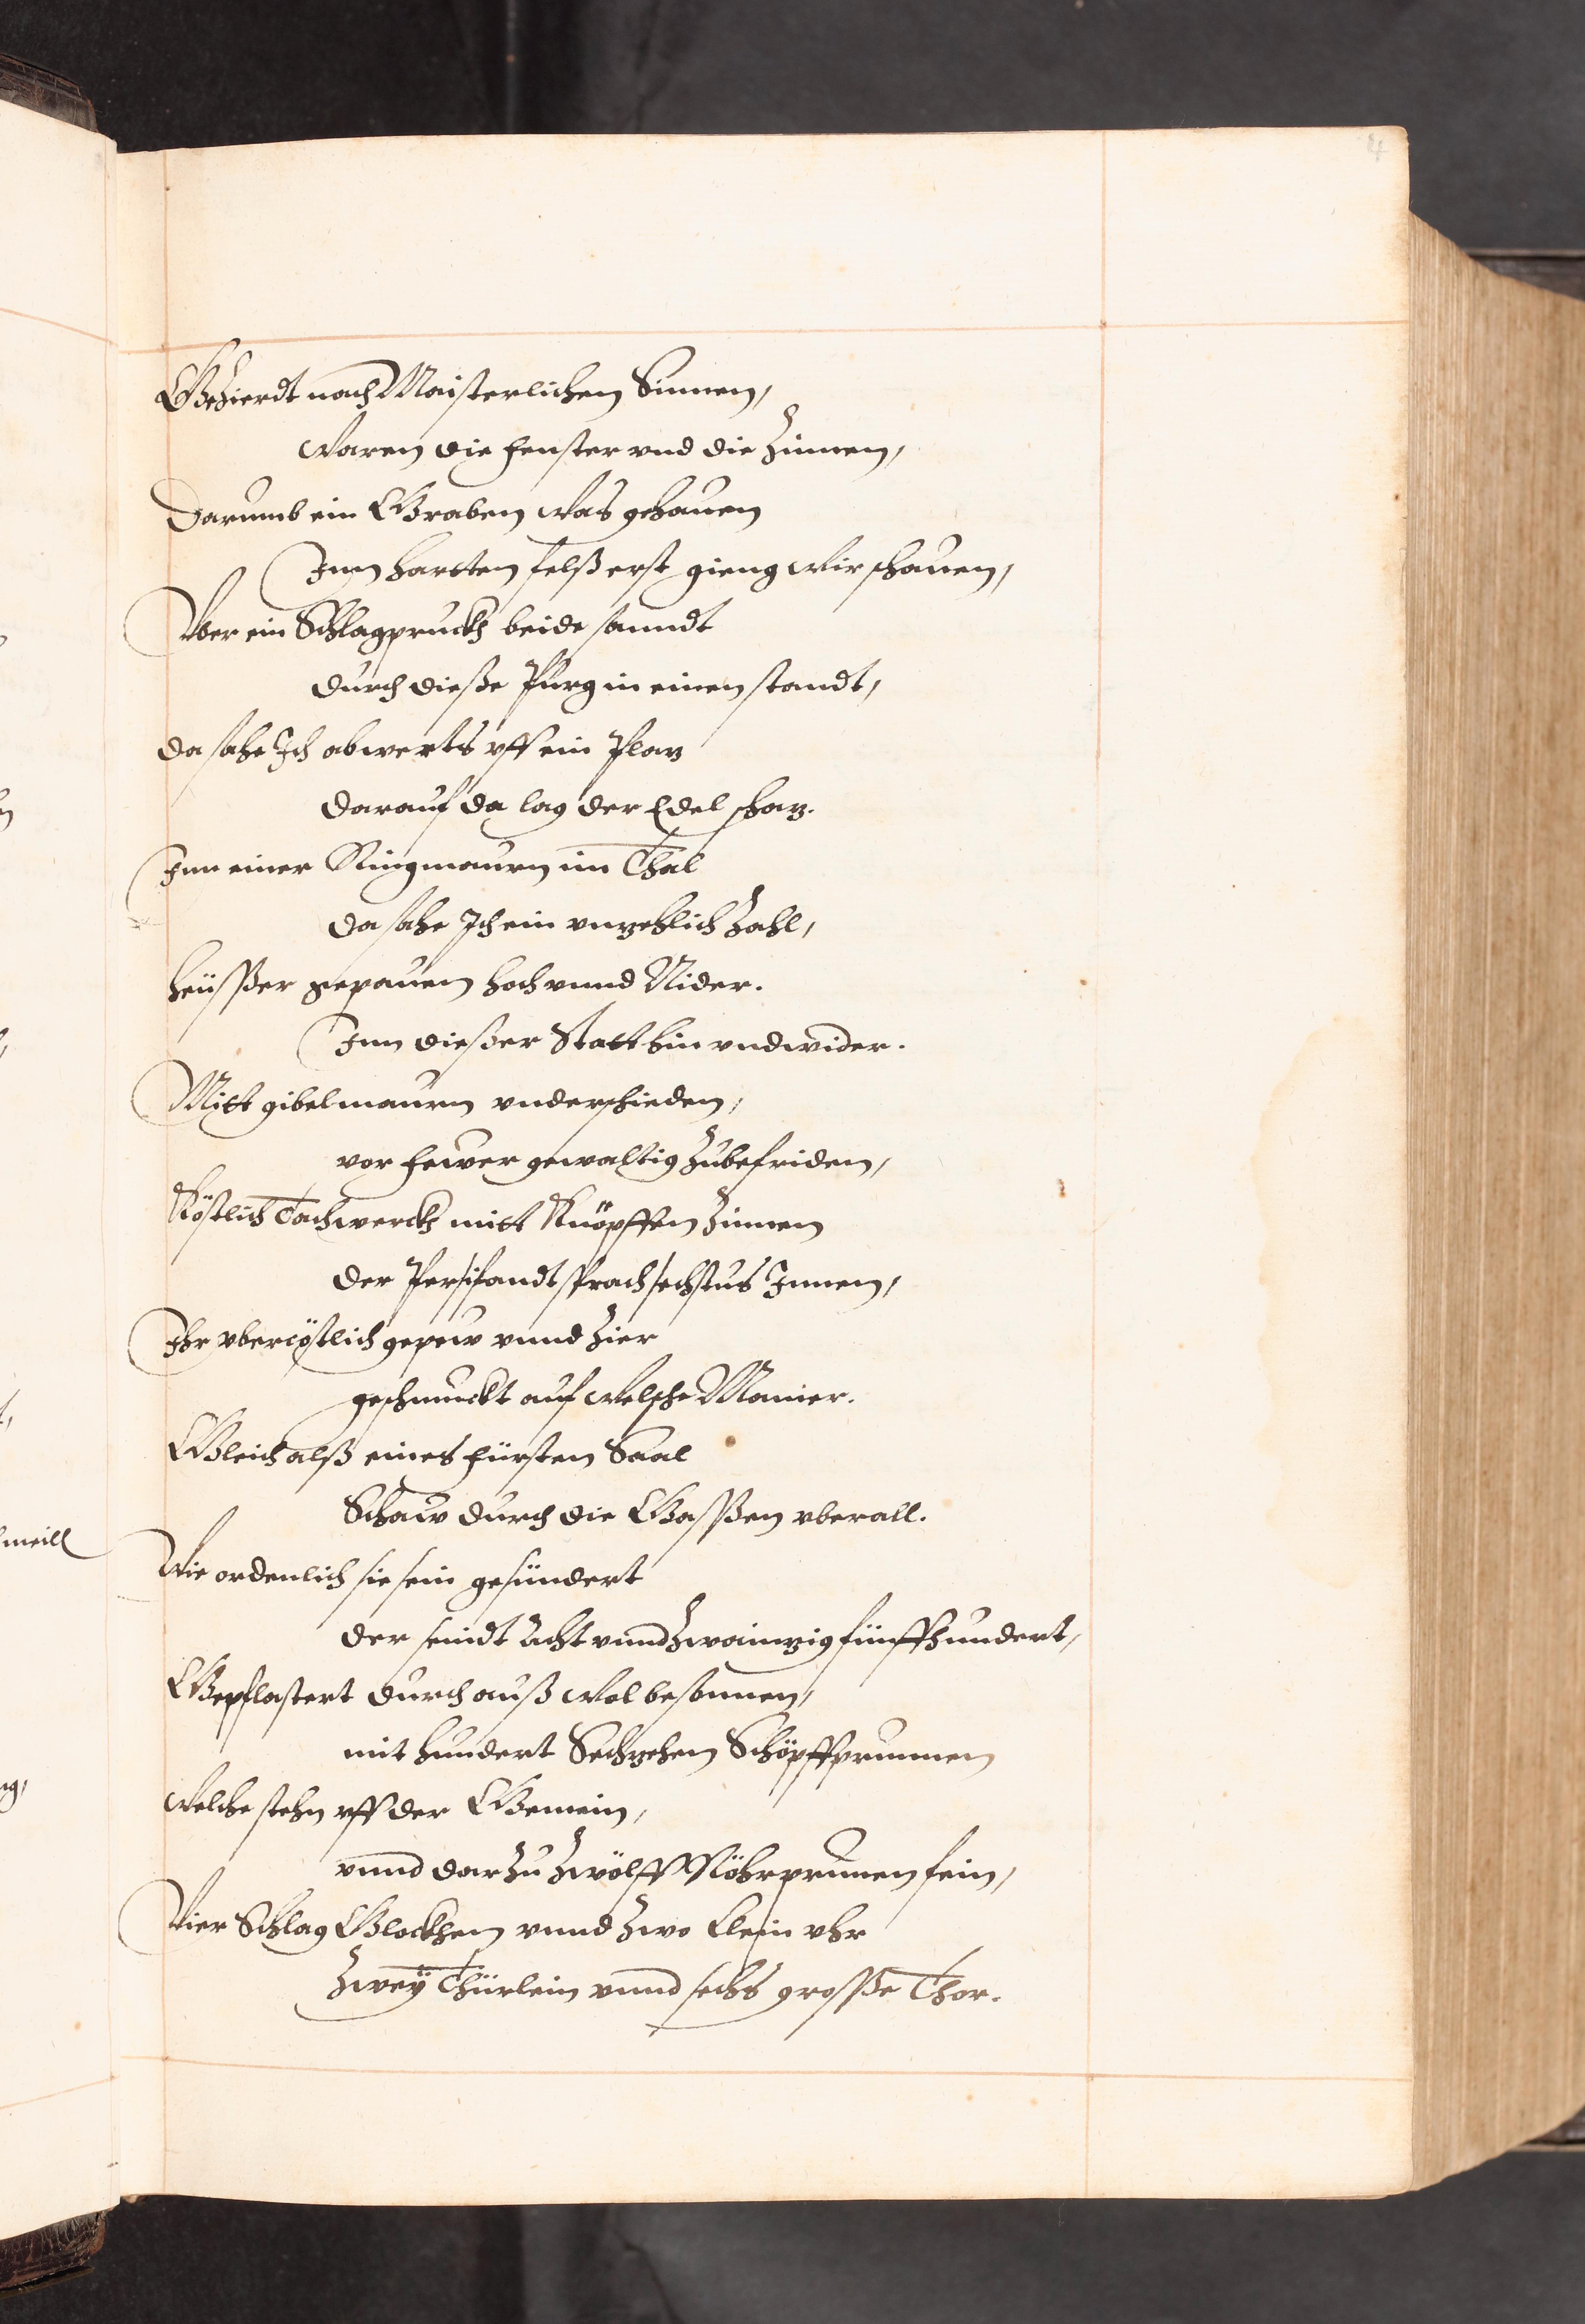 4
Gezierdt nach Maisterlichen Sinnen,
Waren die fenster vnd die Zinnen,
Darumb ein Graben was gehauen
Inn hartten felß erst gieng wir schauen,
Vber ein Schlagpruckh beide sanndt
durch dieße Purg in einen standt,
da sahe Ich abwerts vff ein Plaz
darauf da lag der Edel schaz.
Inn einer Ringmaurn im Thal
da sahe Ich ein vnzehlich Zahl,
heüsser gepauen hoch vnnd Nider.
Inn dießer Statt hin vnd wider.
Mitt gibelmaurn vnderschieden,
vor fewer gewaltig zubefriden,
Köstlich Tachwerckh mitt Knöpffen Zinnen
der Persifandt sprach sechstus Innen,
Ihr vbercöstlich gepew vnnd Zier
geschmuckt auf Welsche Manier.
Gleich alß eines fürsten Saal
Schaw durch die Gassen vberall.
Wie ordenlich sie sein gesündert
der seindt Acht vnnd Zwainzig fünffhundert,
Gepflastert durch auß wol besonnen,
mit hundert Sechzehen Schöpffprunnen
Welche stehn vff der Gemein,
vnnd darZu Zwölff Röhrprunen fein,
Vier Schlag Glockhen vnnd Zwo klein vhr
Zweÿ Thürlein vnnd sechs grosse Thor.